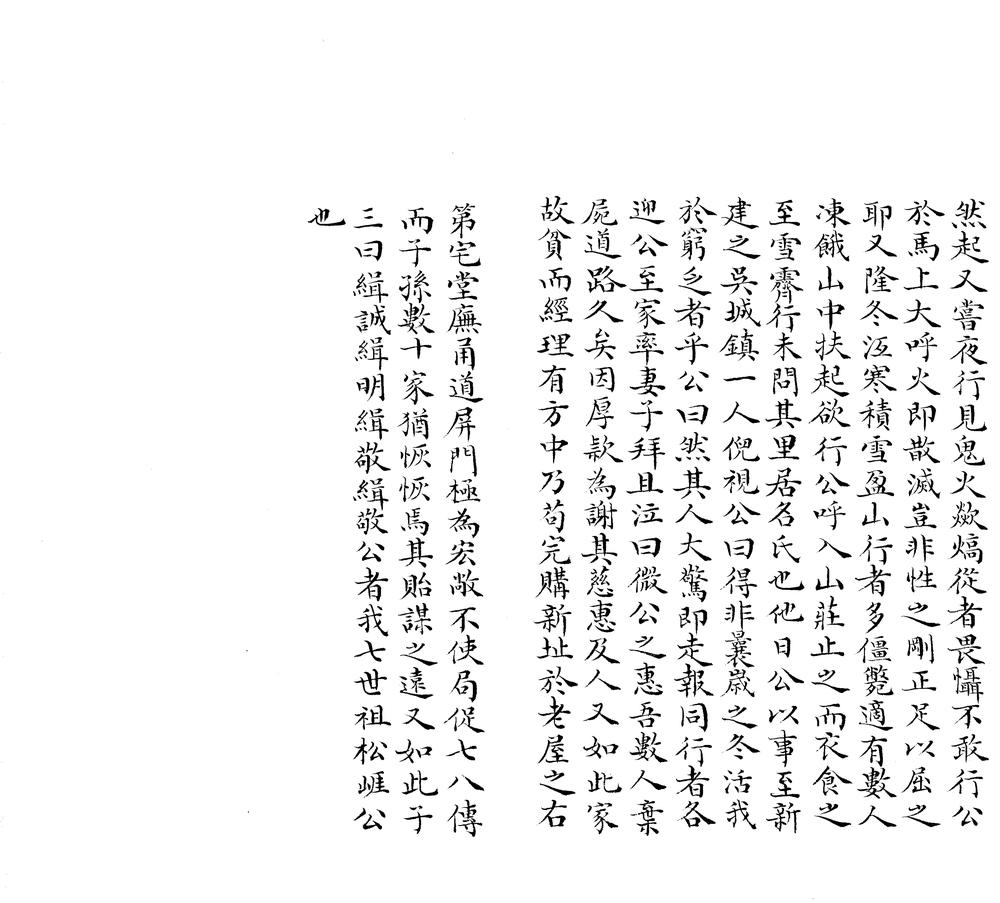 然起又嘗夜行見鬼火歘熇從者畏懾不敢行公
於馬上大呼火即散滅豈非性之剛正足以屈之
耶又隆冬沍寒積雪盈山行者多僵斃適有數人
凍餓山中扶起欲行公呼入山莊止之而衣食之
至雪霽行未問其里居名氏也他日公以事至新
建之吳城鎮一人倪視公曰得非曩歲之冬活我
於窮乏者乎公曰然其人大驚即走報同行者各
迎公至家率妻子拜且泣曰微公之惠吾數人棄
屍道路久矣因厚款為謝其慈惠及人又如此家
故貧而經理有方中乃苟完購新址於老屋之右
第宅堂廡甬道屏門極為宏敞不使局促七八傳
而子孫數十家猶恢恢焉其貽謀之遠又如此子
三曰緝誠緝明緝敬緝敬公者我七世祖松崕公
也